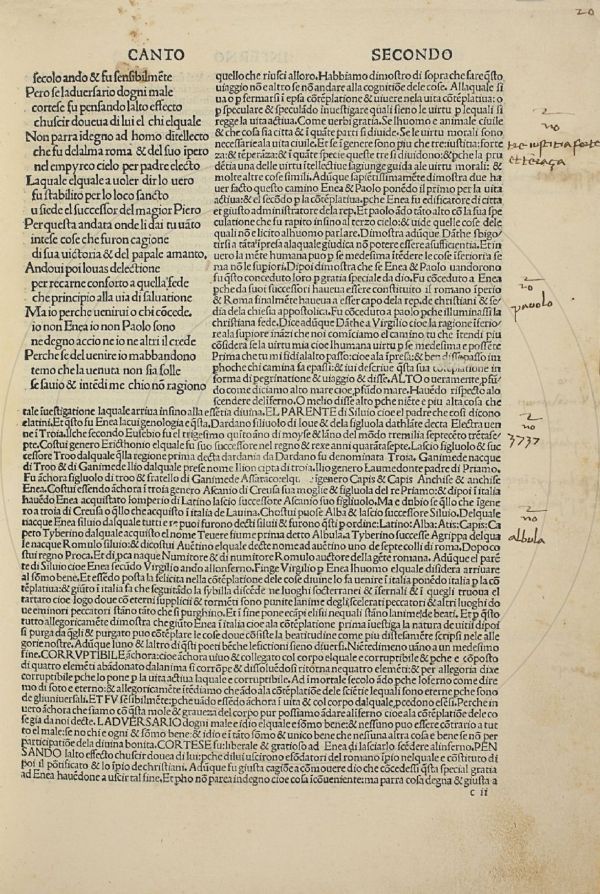 20
CANTO SECONDO
secolo ando & fu sensibilmẽte
Pero se laduersario dogni male
cortese fu pensando lalto effecto
chuscir doueua di lui el chi el quale
Non parra idegno ad homo ditellecto
che fu delalma roma & del suo ipero
nel empyreo cielo per padre electo
La quale el quale a uoler dir lo uero
fu stabilito per lo loco sancto
u siede el successor del magior Piero
Per questa andata onde li dai tu uãto
intese cose che furon cagione
di sua uictoria & del papale amanto.
Andoui poi lo uas delectione
per recarne conforto a quella fede
che principio alla uia di saluatione
Ma io perche uenirui o chi cõcede.
io non Enea io non Paolo sono
ne degno a ccio ne io ne altri il crede
Perche se del uenire io mabbandono
temo che la uenuta non sia folle
se sauio & intẽdi me chio nõ ragiono
quello che riusci alloro. Habbiamo dimostro di sopra che far questo
uiaggio nõ e altro se nõ andare alla cognitiõe dele cose. Alla quale si
ua o p fermarsi ĩ epsa cõtẽplatiõe & uiuere nela uita cõtẽplatiua: o
p speculare & speculãdo inuestigare quali sieno le uirtu p lequali si
regge la uita actiua. Come uerbi gratia. Se lhuomo e animale ciuile
& che cosa sia citta & ĩ quãte parti si diuide. Se le uirtu morali sono
necessarie ala uita ciuile. Et se ĩ genere sono piu che tre: iustitia: forte
za: & tẽperãza: & ĩ quãte specie queste tre si diuidono: & pche la pru
dẽtia una delle uirtu ĩtellectiue sagiunge guida ale uirtu morali: &
molte altre cose simili. Adũque sapiẽtissimamẽte dimostra due ha
uer facto questo camino Enea & Paolo ponẽdo il primo per la uita
actiua: & el secõdo p la cõtẽplatiua. pche Enea fu edificatore di citta
et giusto administratore dela rep. Et paolo ãdo tãto alto cõ la sua spe
culatione che fu rapito infino al terzo cielo: & uide quelle cose dele
quali nõ e licito alhuomo parlare. Dimostra adũque Dãthe sbigo/
tirsi a tãta ĩpresa ala quale giudica nõ potere essere a sufficientia. Et in
uero la mẽte humana puo p se medesima ĩtẽdere le cose ĩferiori a se
ma nõ le supiori. Dipoi dimostra che se Enea & Paolo uandorono
fu q̃sto conceduto loro p gratia speciale da dio. Fu cõceduto a Enea
pche da suoi successori haueua essere constituito il romano ĩperio
& Roma finalmẽte haueua a esser capo dela rep. de christiani & se/
dia dela chiesia appostolica. Fu cõceduto a paolo pche illuminassi la
christiana fede. Dice adũque Dãthe a Virgilio cioe la ragione ĩferio/
re ala supiore inãzi che noi comiciamo el camino tu che ĩtendi piu
cõsidera se la uirtu mia cioe lhumana uirtu p se medesima e possẽte
Prima che tu mi fidi alalto passo: cioe ala ĩpresa: & ben disse passo in
pho che chi camina fa epassi: & lui descriue q̃sta sua cõtẽplatione in
forma di pegrinatione & uiaggio & disse. ALTO o ueramente, pfũ/
do come diciamo alto mare cioe, pfũdo mare. Hauẽdo rispecto alo
scendere del ĩferno. O melio disse alto pche niẽte e piu alta cosa che
tale iuestigatione la quale arriua in sino alla essẽtia diuina. EL PARENTE di Siluio cioe el padre che cosi dicono
e latini. Et q̃sto fu Enea la cui genologia e q̃sta. Dardano filiuolo di Ioue & dela figluola dathlãte decta Electra uen
ne ĩ Troia. Ilche secondo Eusebio fu el trigesimo quĩto ãno di moyse & lãno del mõdo tre milia septecẽto trẽtase/
pte. Costui genero Ericthonio elquale fu suo successore nel regno & rexe anni quarãtasepte. Lascio figluolo & suc
cessore Troo dalquale q̃lla regione prima decta dardania da Dardano fu denominata Troia. Ganimede nacque
di Troo & di Ganimede Ilio dalquale prese nome Ilion cipta di troia. Ilio genero Laumedonte padre di Priamo.
Fu ãchora figluolo di troo & fratello di Ganimede Assaraco: elquale genero Capis & Capis Anchise & anchise
Enea. Costui essendo ãchora ĩ troia genero Ascanio di Creusa sua moglie & figluola del re Priamo: & dipoi ĩ italia
hauẽdo Enea acquistato lomperio di Latino lascio successore Ascanio suo figliuolo. Ma e dubio se q̃llo che ĩgene
to a troia di Creusa o q̃llo che acquisto ĩ italia de Lauina. Chostui puose Alba & lascio successore Siluio. Delquale
nacque Enea siluio dalquale tutti e re puoi furono decti siluii & furono q̃sti p ordine: Latino: Alba: Atis: Capis: Ca
peto Tyberino dalquale acquisto el nome Teuere fiume prima detto Albula. a Tyberino successe Agrippa del qua
le nacque Romulo siluio: & di costui Auẽtino elquale decte nome ad auẽtino uno de septe colli di roma. Dopo co
stui regno Proca. Et di pca naque Numitore & di numitore Romulo auctore della gẽte romana. Adũque el parẽ
te di Siluio cioe Enea secãdo Virgilio ando all inferno. Finge Virgilio p Enea lhuomo elquale disidera arriuare
al sõmo bene. Et essẽdo posta la felicita nella cõtẽplatione dele cose diuine lo fa uenire ĩ italia ponẽdo italia p la cõ
tẽplatiua: & giũto ĩ italia fa che seguitãdo la sybilla discẽde ne luoghi socterranei & ĩfernali & ĩ quegli truoua el
tartaro cioe logo doue cõ eterni supplicii & tormẽti sono punite lanime degli scelerati peccatori & altri luoghi do
ue e minori peccatori stãno tãto che si purghino. Et ĩ fine pone e cãpi elisi ne quali stãno lanime de beati. Et p q̃sto
tutto allegoricamẽte dimostra che giũto Enea ĩ italia cioe ala cõtẽplatione prima ĩuestiga la natura de uitii dipoi
si purga da q̃gli: & purgato puo cõtẽplare le cose doue cõsiste la beatitudine come piu distesamẽte scripsi nele alle
gorie nostre. Adũque luno & laltro di q̃sti poeti bẽche le fictioni sieno diuersi. Niẽtedimeno uãno a un medesimo
fine. CORRUPTIBILE ãchora: cioe ãchora uiuo & collegato col corpo elquale e corruptibile & pche e cõposto
di quatro elemẽti abandonato dalanima si corrõpe & dissoluẽdosi ritorna ne quatro elemẽti: & per allegoria dixe
corruptibile pche lo pone p la uita actiua laquale e corruptibile. Ad imortale secolo ãdo pche loferno come dire
mo di soto e eterno: & allegoricamẽte ĩtẽdiamo che ãdo ala cõtẽplatione dele sciẽtie lequali sono eterne pche sono
de gli uniuersali. ET FV sensibilmẽte: pche uado essẽdo ãchora ĩ uita & col corpo dalquale, pcedono e sẽsi. Perche in
uero ãchora che siamo cõ questa mole & graueza del corpo pur possiamo ãdare al ĩferno cioe ala cõtẽplatione dele co
se gia da noi decte. LADVERSARIO dogni male e idio elquale e sõmo bene: & nessuno puo essere contrario a tut
to el male: se no chi e ogni & sõmo bene: & idio e ĩ tãto sõmo & unico bene che nessuna altra cosa e bene se nõ per
participatiõe dela diuina bonita. CORTESE fu: liberale & gratioso ad Enea di lasciarlo scẽdere al inferno. PEN
SANDO lalto effecto chuscir douea di lui: pche di lui uscirono e sõdatori del romano ĩpio nelquale e cõstituto di
poi il põtificato & lo ĩpio de christiani. Adũque fu giusta cagiõe a cõmouere dio che cõcedessi q̃sta special gratia
ad Enea hauẽdone a uscir tal fine. Et pho nõ parea indegno cioe cosa icõueniente: ma parra cosa degna & giusta a
c ii
no
tre iustitia forte
et teraça
20
pauolo
no
3737
no
albula